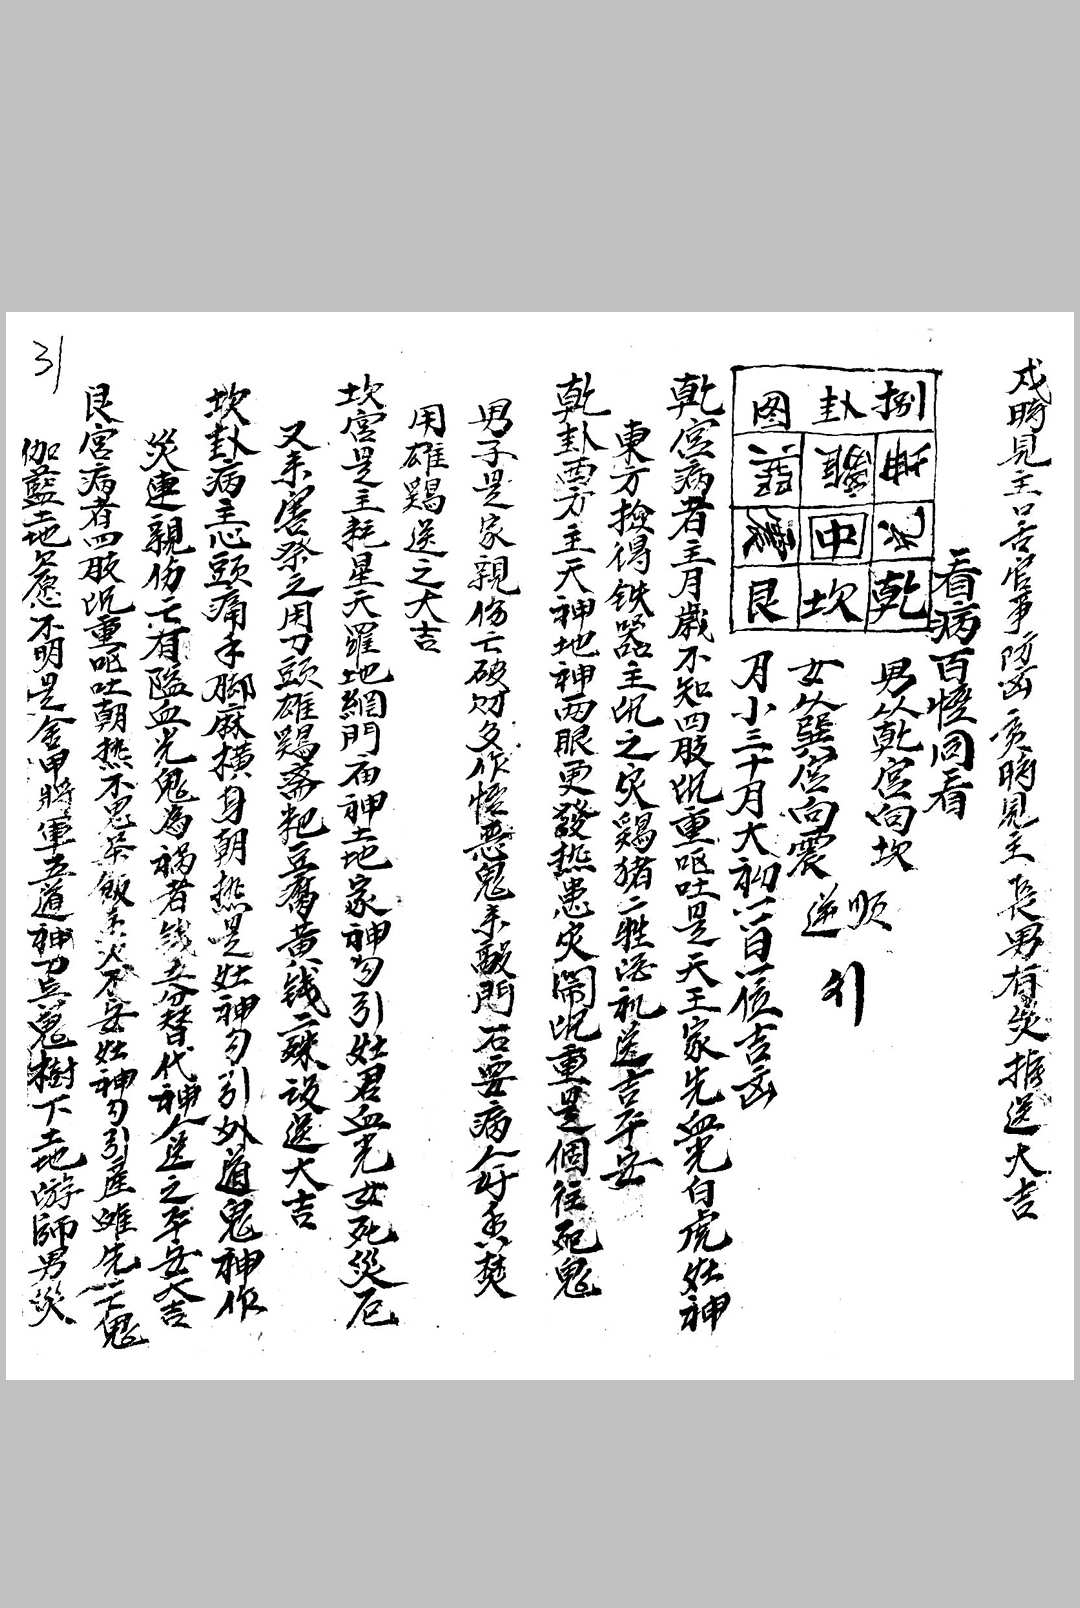 戍時見主口舌官事防凶亥時見主長男有災推送大吉
看病百怪同看
捌卦圖
坤離巽
兌中震
乾坎艮
男从乾宫向坎 順
女从巽宫向震 逆
月小三十月大初六百一位吉凶
乾宫病者主月歲不知四肢沉重呕吐是天王家先血光白虎灶神
東方撿得铁器主沉之灾鷄猪二牲酒礼送吉平安
乾卦西方主天神地神两眼更發热患灾闹沉重是個往死鬼
男子是家親伤亡破财多作怪惡鬼来敲門石要病人好香焚
用雄鷄送之大吉
坎宫是主耗星天羅地網門前神土地家神勾引灶君血光女死災厄
又来害祭之用刀頭雄鷄斋粑豆腐黃钱二殊设送大吉
坎卦病主心頭痛手脚麻横身朝热是灶神勾引外道鬼神作
災連親伤亡有隘血光鬼為祸者钱五分替代神人送之平安大吉
艮宫病者四肢沉重呕吐朝热不思茶飯夫火不安灶神勾引產难先亡鬼
伽藍土地欠愿不明是金甲將軍五道神刀兵鬼樹下土地游師男災
31